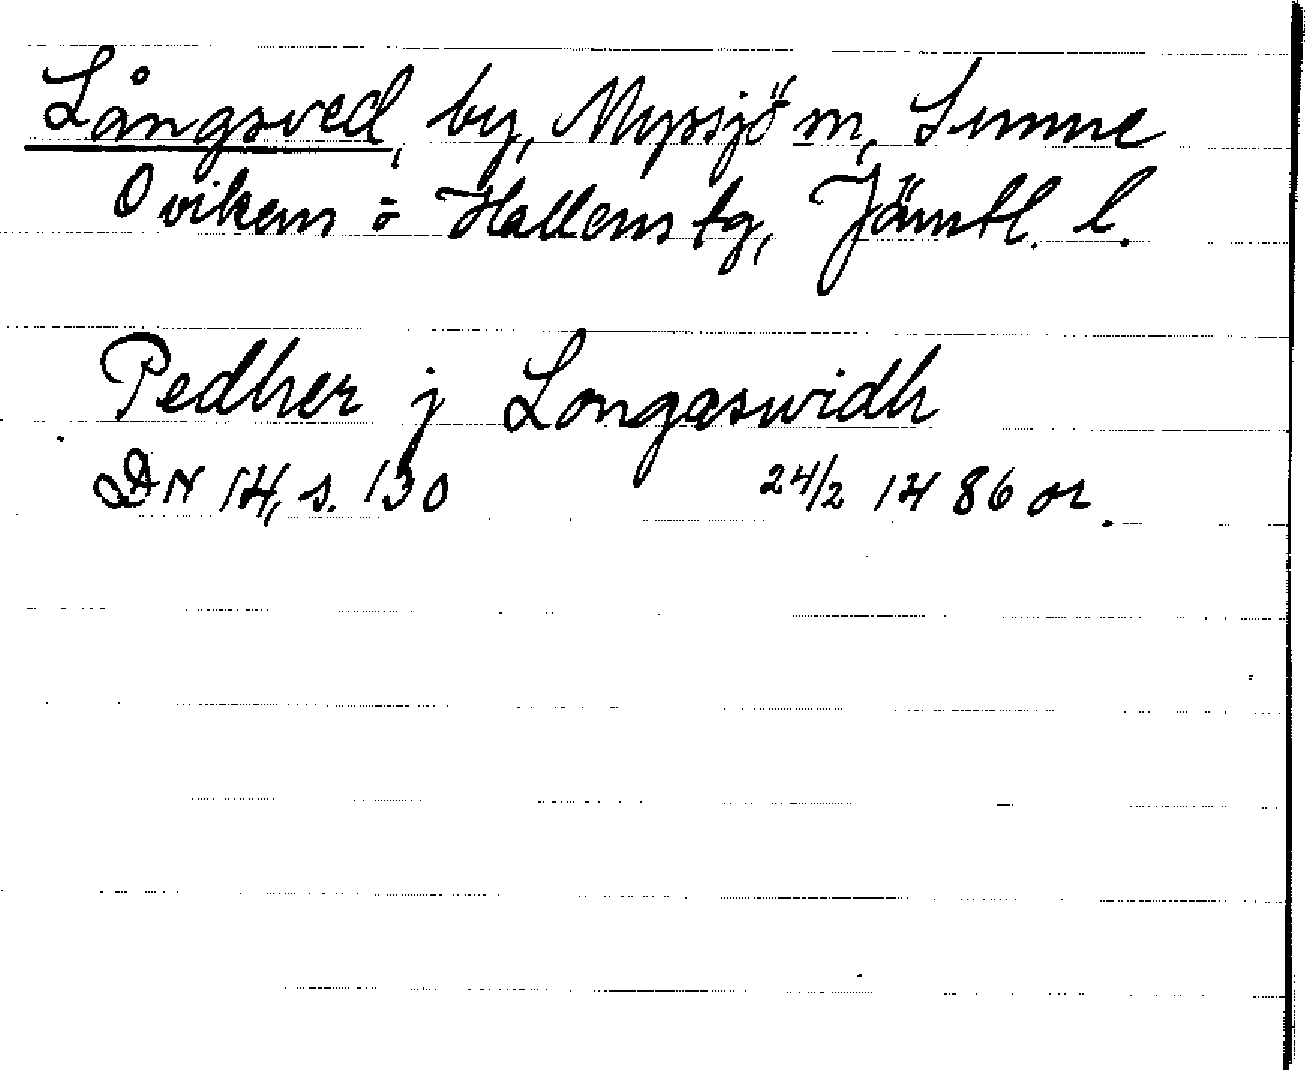 Långsved, by, Myssjö sn, Sunne
Ovikens o Hallens tg, Jämtl. l.
Pedher j Longaswidh
DN 14, s. 130 24/2 1486 or.